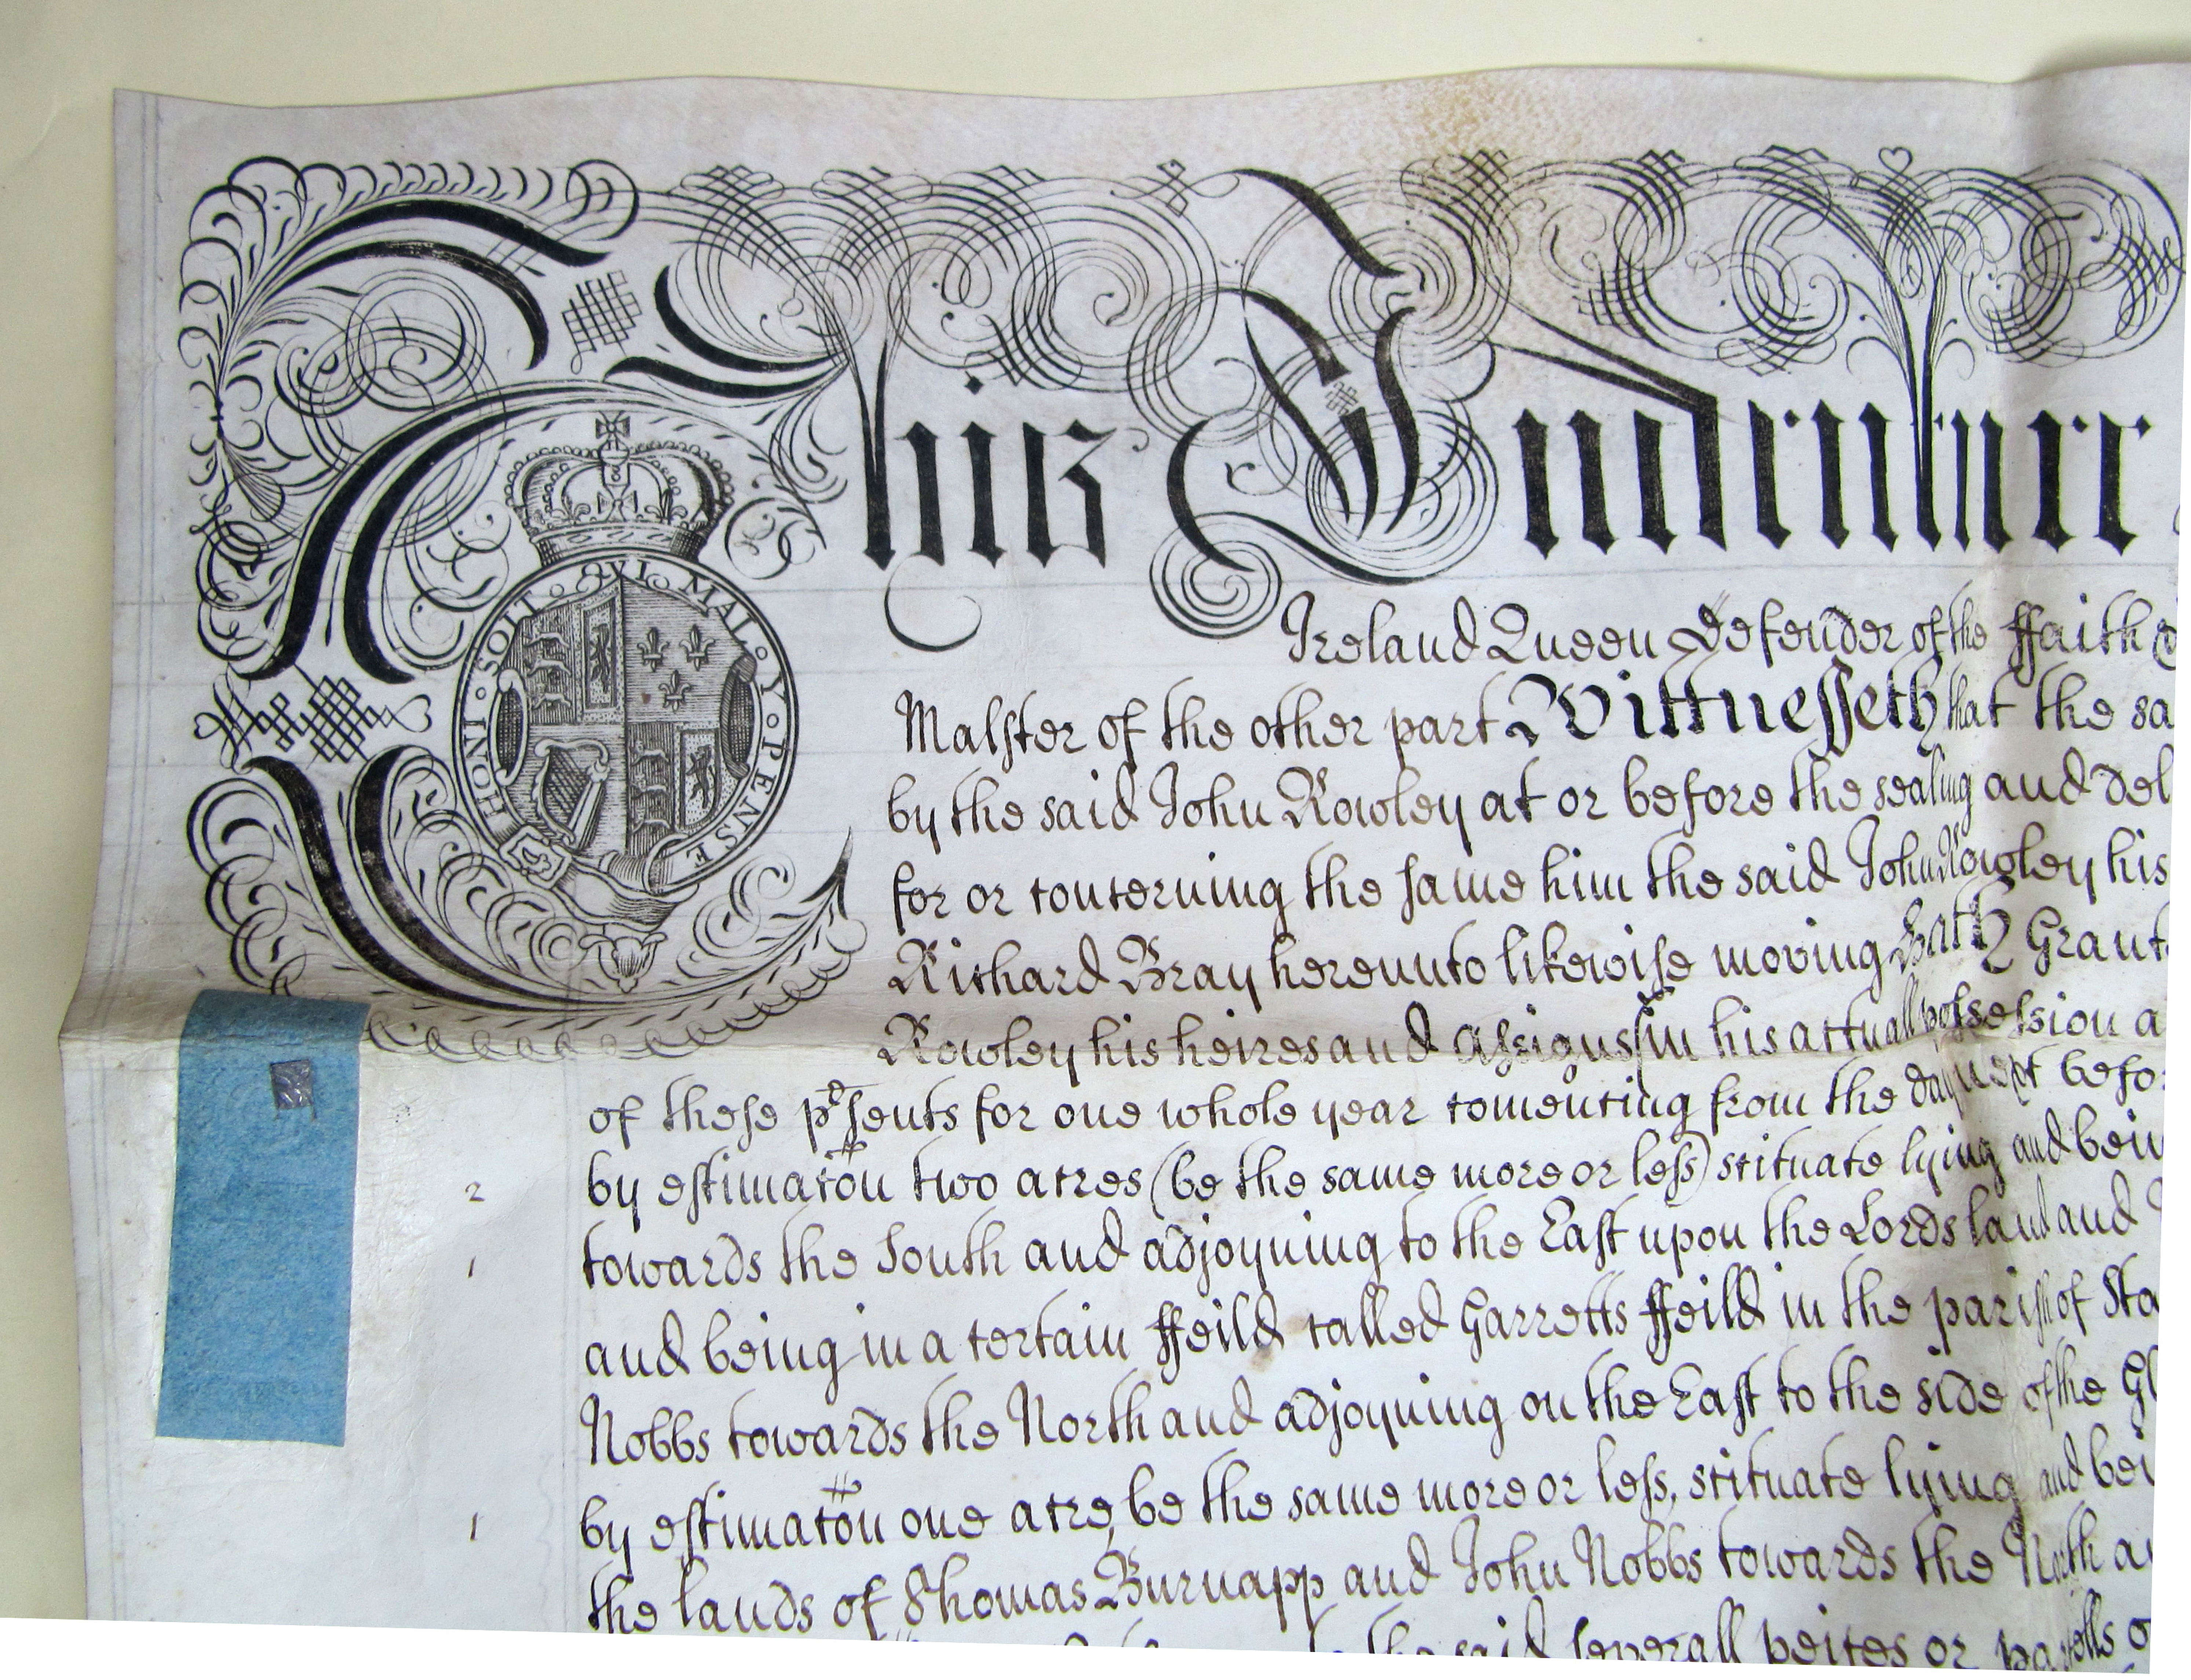 This Indenture
HONI · SOIT · QVI · MAL · Y · PENSE
Ireland Queen Defender of the ffaith
Malster of the other part Wittnesseth that the sa
by the said John Rowley at or before the sealing and del
for or concerning the same him the said John Rowley his
Richard Bray hereunto likewise moving Hath Grant
Rowley his heires and assignes in his actuall possession a
of these pͬsents for one whole year comencing from the day next befo
2 by estimacōn two acres (be the same more or less) scituate lying and bein
1 towards the South and adjoyning to the East upon the Lords land and
and being in a certain ffeild called Garretts ffeild in the parish of Sta
Nobbs towards the North and adjoyning on the East to the side of the Gl
1 by estimacōn one acre, be the same more or less, scituate lying and bei
the lands of Thomas Burnapp and John Nobbs towards the North a
the said severall peices or parcells o